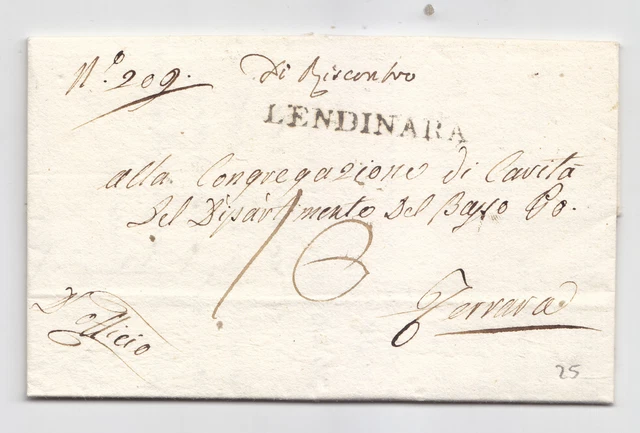 N.º 209. Di Riscontro
LENDINARA
alla Congregazione di Carità
Del Dipartimento Del Basso Po.
16
Ferrara
D'Officio
25